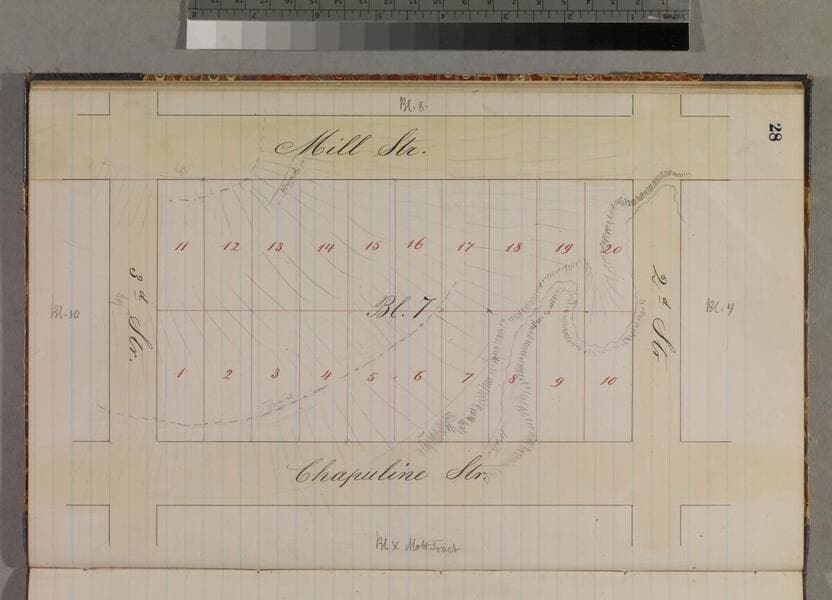 Bl. 8.
28
Mill Str.
11 12 13 14 15 16 17 18 19 20
3d Str.
Bl. 7
2d Str
Bl. 10
Bl. 4
1 2 3 4 5 6 7 8 9 10
Chapuline Str.
Bl X Mott Tract